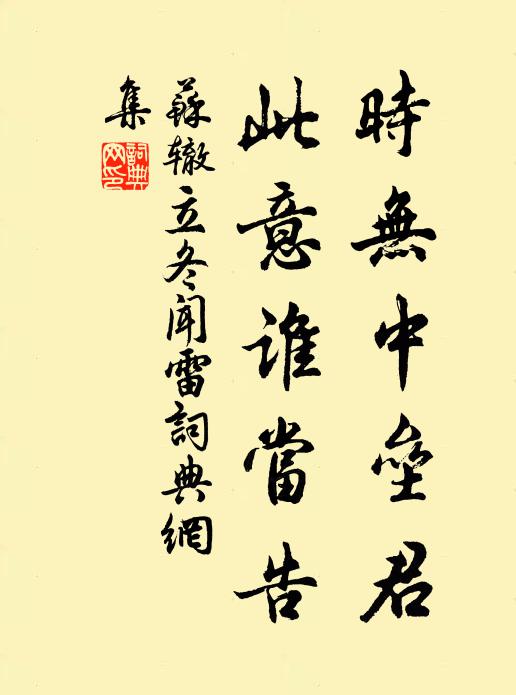 時無中壘君
此意誰當告
蘇轍立冬聞雷詞典網
集
詞典網印